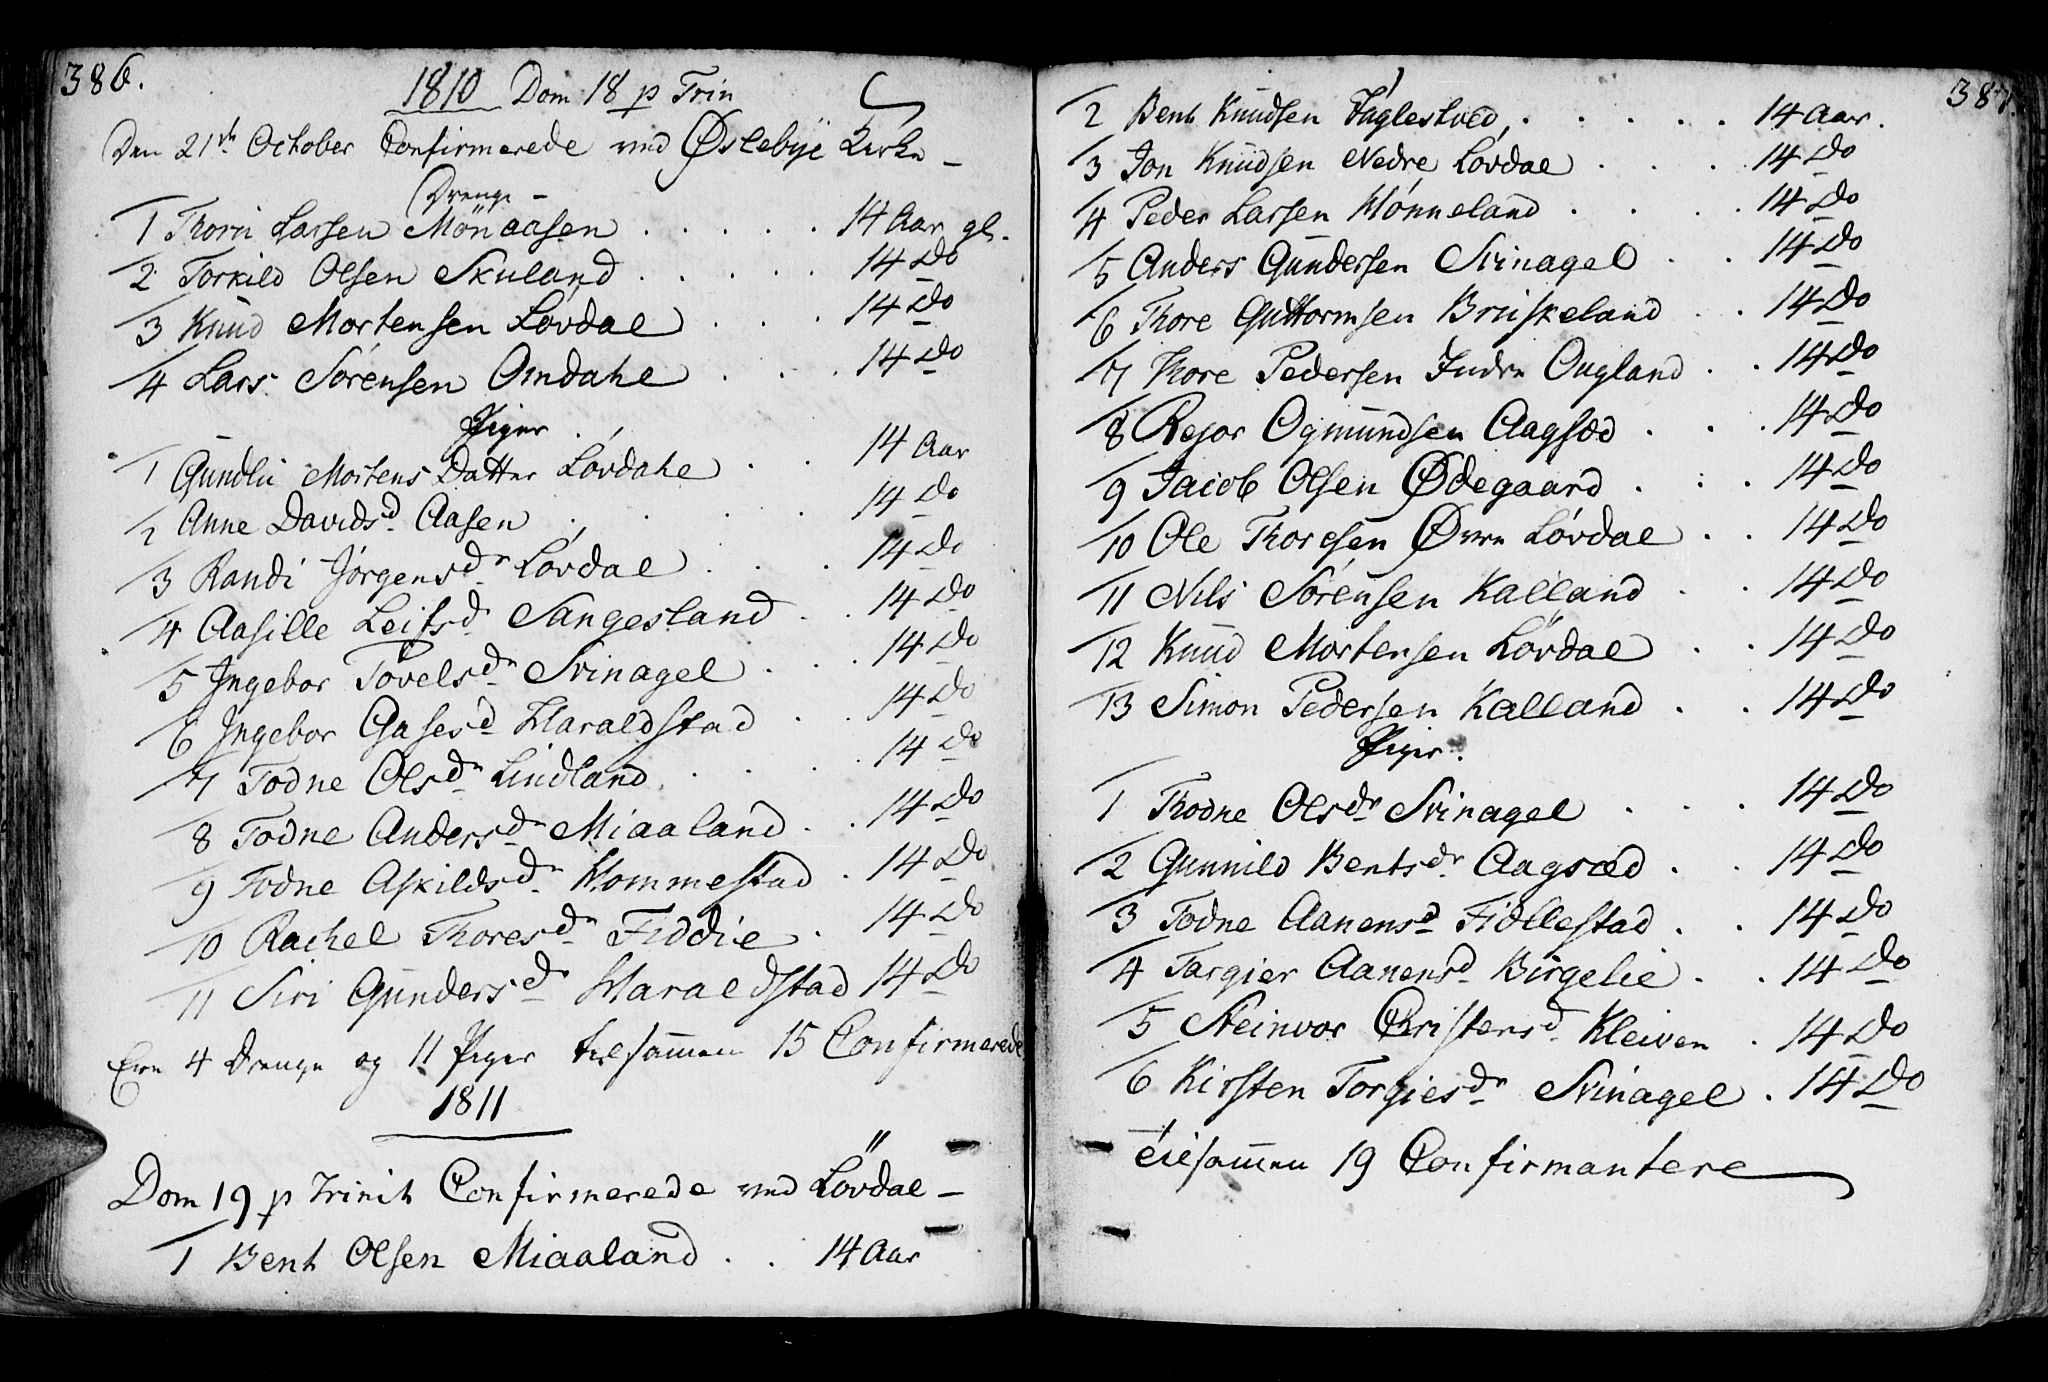 386.
1810 Dom 18 p Trin
Den 21de October Confirmerede ved Øslebye Kirke –
Drenge –
1 Thorri Larsen Mönaasen . . . . . 14 Aar gl.
2 Torkild Olsen Skuland . . . . 14 Do
3 Knud Mortensen Lóvdal . . . 14 Do
4 Lars Sórensen Omdahl . . . 14 Do
Piger.
1 Gundlei Mortens Datter Lóvdahl . . 14 Aar
2 Anne Davidsd. Aasen . . . . 14 Do
3 Randi Jórgensdr. Lóvdal . . . 14 Do
4 Aasille Leifsd. Sangesland . . 14 Do
5 Ingebor Povelsdr. Svinagel . . . 14 Do
6 Ingebor Aasesd. Haraldstad . . 14 Do
7 Todne Olsdr. Lindland . . . . 14 Do
8 Todne Andersdr. Miaaland . . 14 Do
9 Todne Askildsdr. Hommestad . 14 Do
10 Rachel Thoresdr. Fiddie . 14 Do
11 Siri Gundersdr. Haraldstad 14 Do
Ere 4 Drenge og 11 Piger tilsam̄en 15 Confirmerede
1811
Dom 19 p Trinit Confirmerede ved Lövdal –
1 Bent Olsen Miaaland . . 14 Aar
387.
2 Bent Knudsen Fuglestved . . . . . 14 Aar.
3 Jon Knudsen Nedre Lovdal . . . 14 Do
4 Peder Larsen Hónneland . . . . 14 Do
5 Anders Gundersen Svinagel . . 14 Do
6 Thore Guttormsen Bruskeland . . 14 Do
7 Thore Pedersen Indre Øugland . . 14 Do
8 Rejor Ogmundsen Aagsæd . . . 14 Do
9 Jacob Olsen Ødegaard . . . 14 Do
10 Ole Thoresen Øvre Lóvdal . . 14 Do
11 Nils Sórensen Kalland . . 14 Do
12 Knud Mortensen Lövdal . . 14 Do
13 Simon Pedersen Kalland . . 14 Do
Piger.
1 Thodne Olsdr. Svinagel . . . 14 Do
2 Gunnild Bentsdr. Aagsæd . . 14 Do
3 Todne Aanensd. Fidllestad . . 14 Do
4 Targier Aanensd. Birgelie . . 14 Do
5 Steinvor Christensd. Kleiven . 14 Do
6 Kirsten Torgiesdr. Svinagel . 14 Do
tilsam̄en 19 Confirmantere